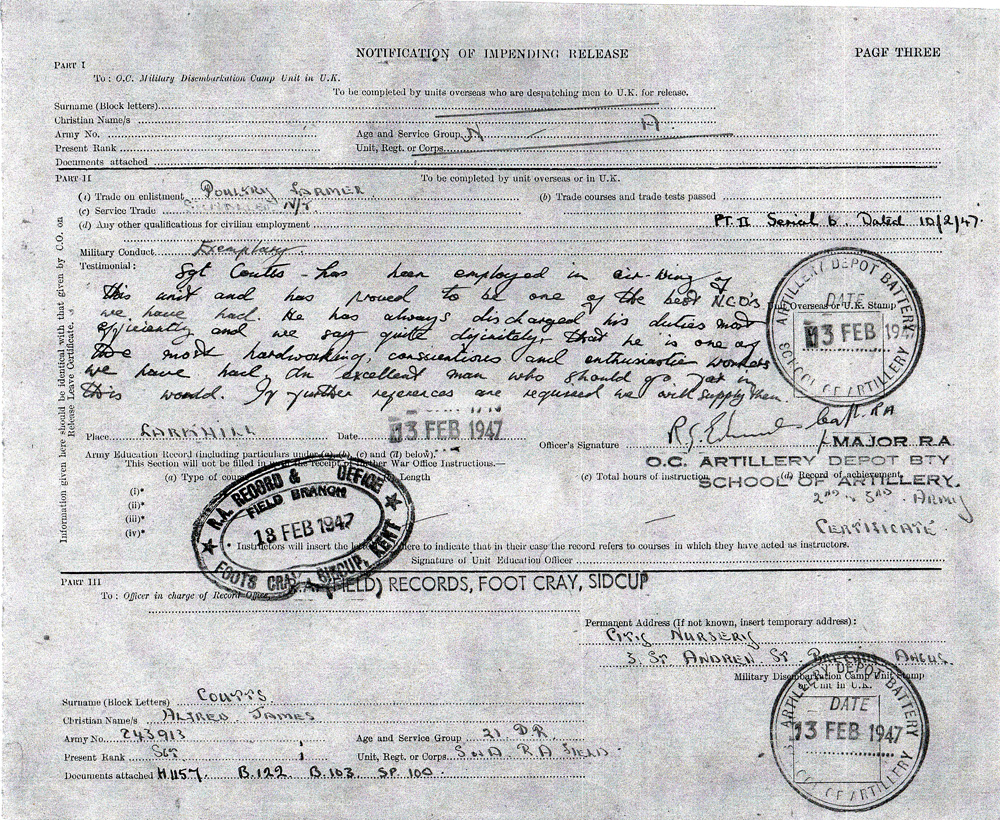 NOTIFICATION OF IMPENDING RELEASE
PAGE THREE
PART I
To: O.C. Military Disembarkation Camp Unit in U.K.
To be completed by units overseas who are despatching men to U.K. for release.
Surname (Block letters)
Christian Name/s
Army No. Age and Service Group N A.
Present Rank Unit, Regt. or Corps
Documents attached
PART II To be completed by unit overseas or in U.K.
(i) Trade on enlistment POULTRY FARMER (b) Trade courses and trade tests passed
(c) Service Trade N/T
(d) Any other qualifications for civilian employment PT. II Serial 6. Dated 10/2/47.
Military Conduct Exemplary
Testimonial: Sgt Coutts - has been employed in air-wing of
this unit and has proved to be one of the best NCO's
we have had. He has always discharged his duties most
efficiently and we say quite difinitely, that he is one of
the most hardworking, conscientious and enthusiastic workers
we have had. An excellent man who should go far in
this world. If further references are required we will supply them.
Unit Overseas or U.K. Stamp
ARTILLERY DEPOT BATTERY
DATE
13 FEB 1947
SCHOOL OF ARTILLERY
Information given here should be identical with that given by C.O. on
Release Leave Certificate.
Place LARKHILL Date 13 FEB 1947
Officer's Signature Capt. RA
MAJOR R.A
O.C. ARTILLERY DEPOT BTY
SCHOOL OF ARTILLERY.
Army Education Record (including particulars under (a), (b), (c) and (d) below).
This Section will not be filled in the receipt of further War Office Instructions.—
(a) Type of Length (c) Total hours of instruction (d) Record of achievement
(i)*
(ii)*
(iii)*
(iv)*
2ND & 3RD ARMY
CERTIFICATE
R.A. RECORD & OFFICE
FIELD BRANCH
13 FEB 1947
FOOTS CRAY, SIDCUP, KENT
* Instructors will insert the here to indicate that in their case the record refers to courses in which they have acted as instructors.
Signature of Unit Education Officer
PART III
R.A. (FIELD) RECORDS, FOOT CRAY, SIDCUP
To: Officer in charge of Record Office,
Permanent Address (If not known, insert temporary address):
CITY NURSERY
3, ST ANDREW ST. BRECHIN ANGUS.
Military Disembarkation Camp Unit Stamp
or Unit in U.K.
ARTILLERY DEPOT BATTERY
DATE
13 FEB 1947
SCHOOL OF ARTILLERY
Surname (Block Letters) COUTTS
Christian Name/s ALFRED JAMES
Army No. 243913 Age and Service Group 21 DR
Present Rank SGT Unit, Regt. or Corps RA FIELD
Documents attached H1157 B.122 B.103 SP.100